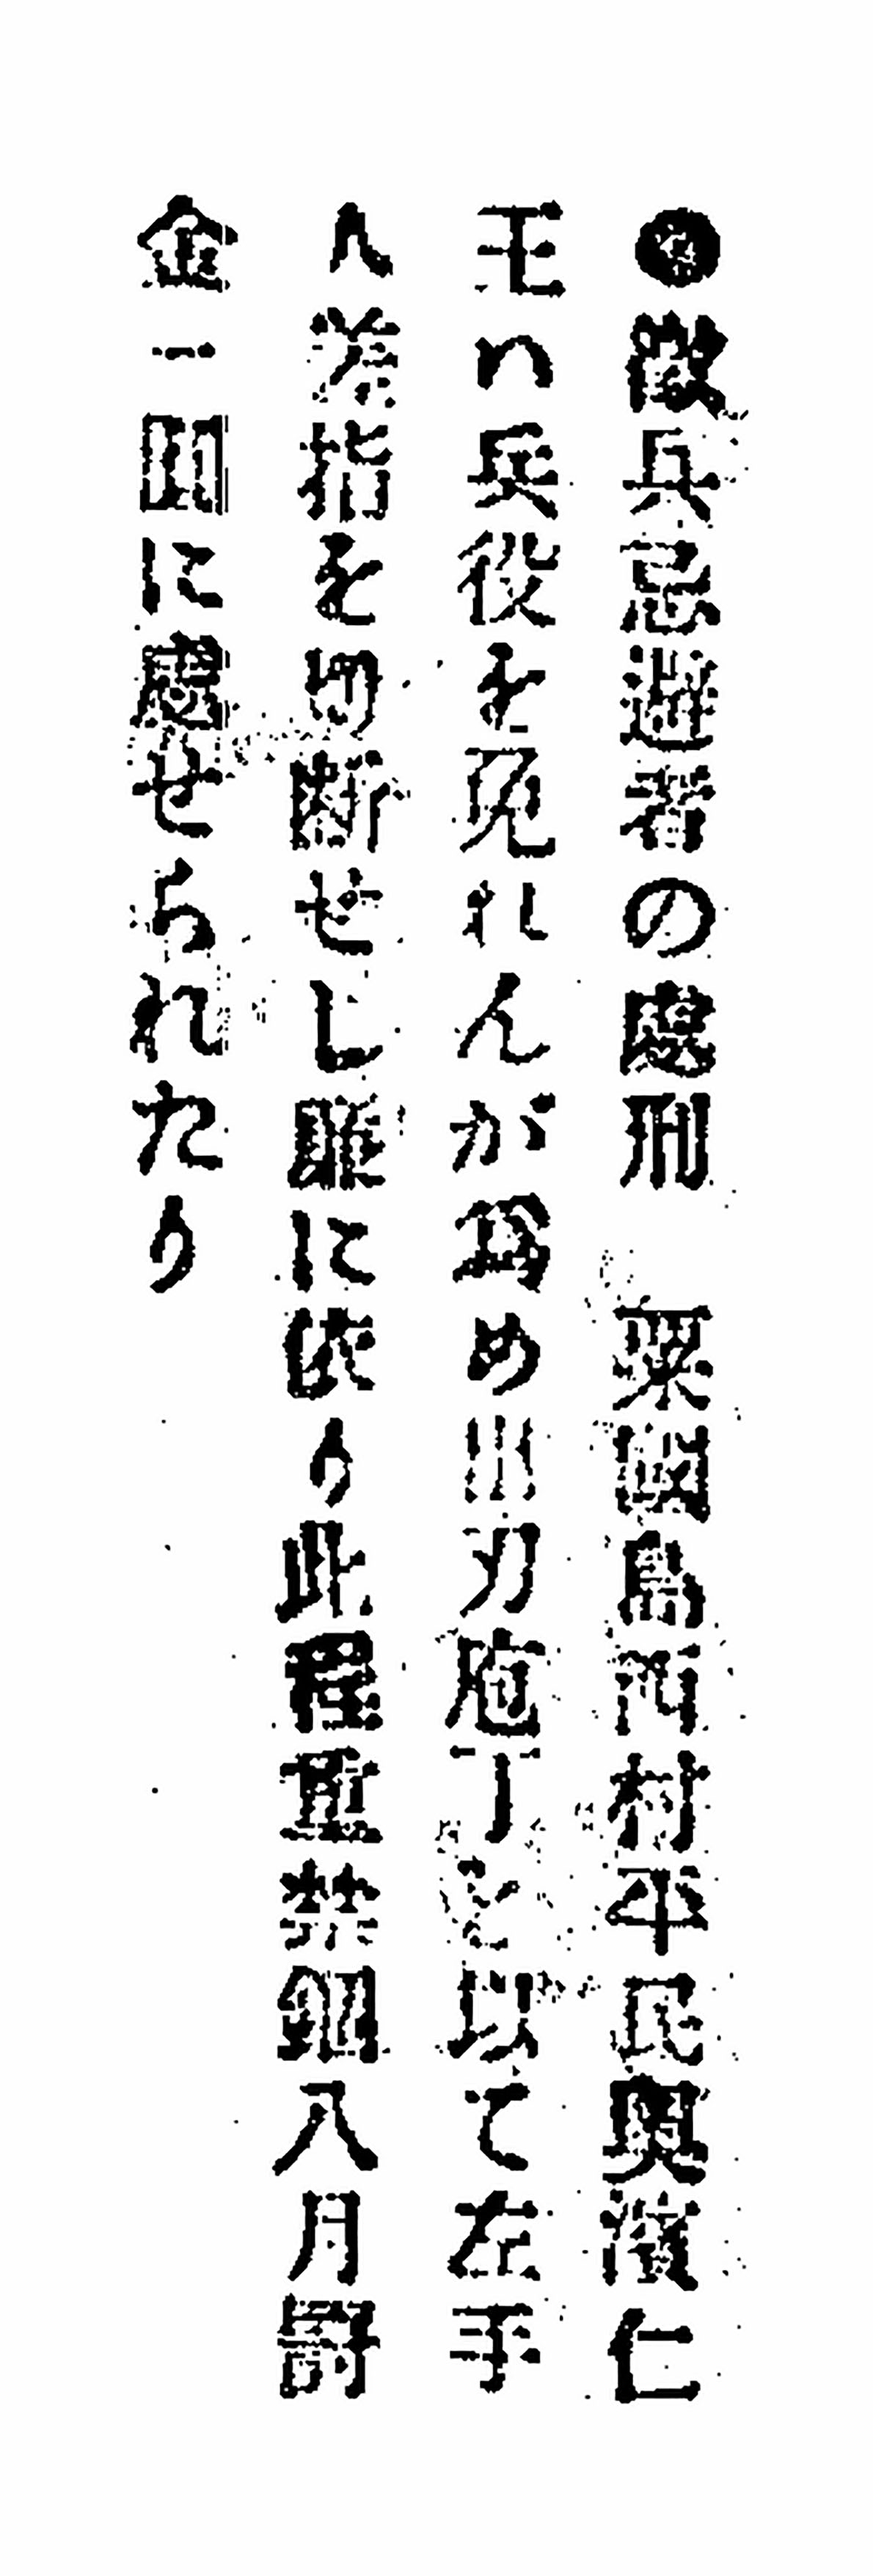 ◉徴兵忌避者の處刑　粟國島西村平民奥濱仁
王ハ兵役を免れんが爲め出刃庖丁を以て左手
人差指を切断せし廉に依り此程重禁錮八月罸
金一圓に處せられたり